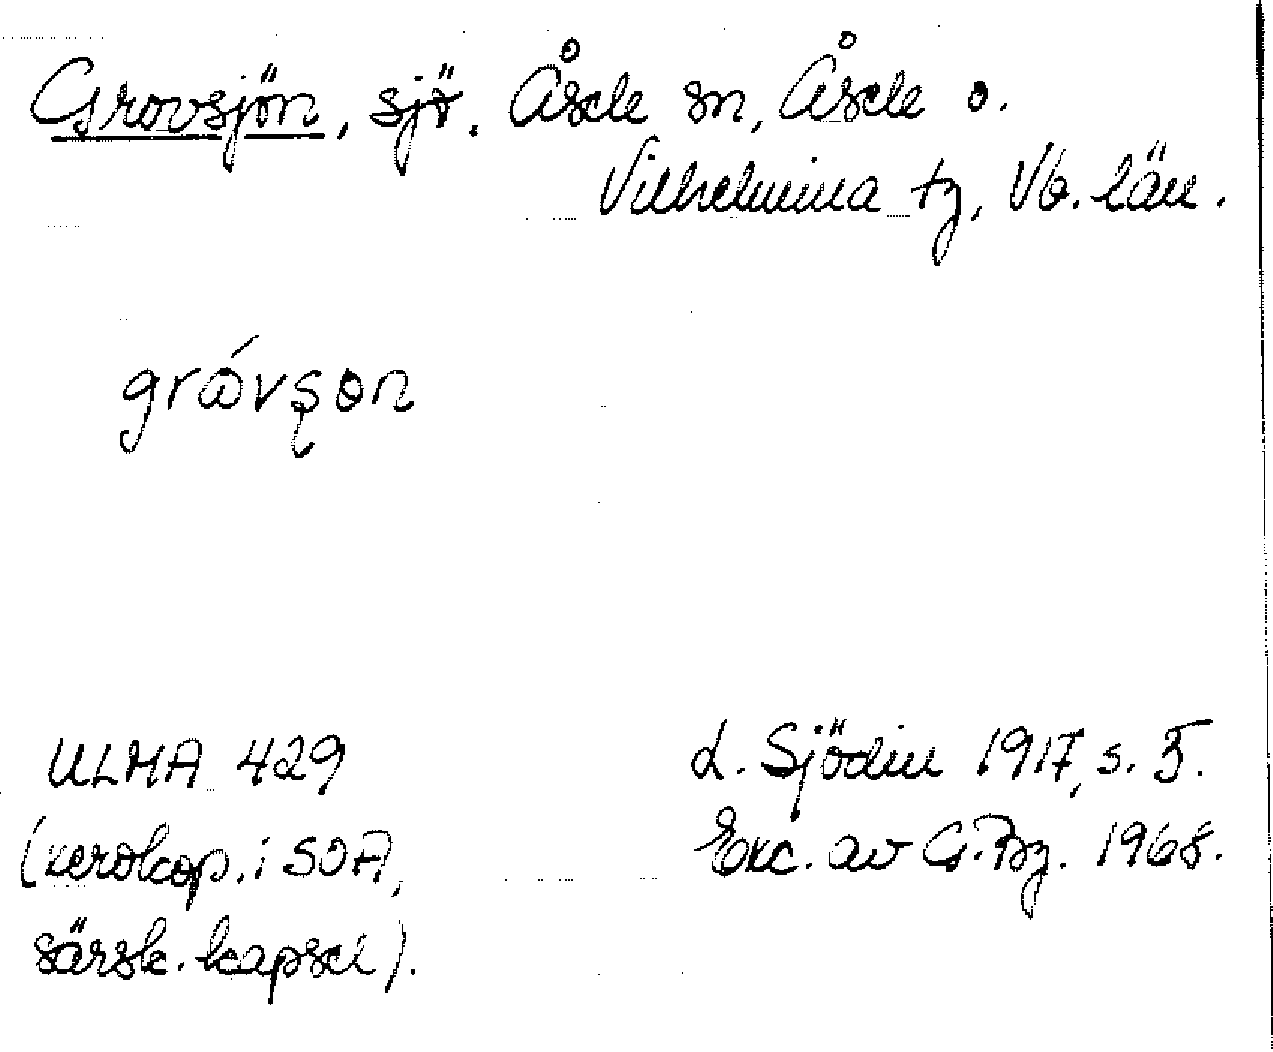 Grovsjön, sjö. Åsele sn, Åsele o.
Vilhelmina tg, Vb. län.
grávşɵn
ULMA 429
(xerokop. i SOA,
särsk. kapsel).
L. Sjödin 1917, s. 5.
Exc. av G. Bg. 1968.